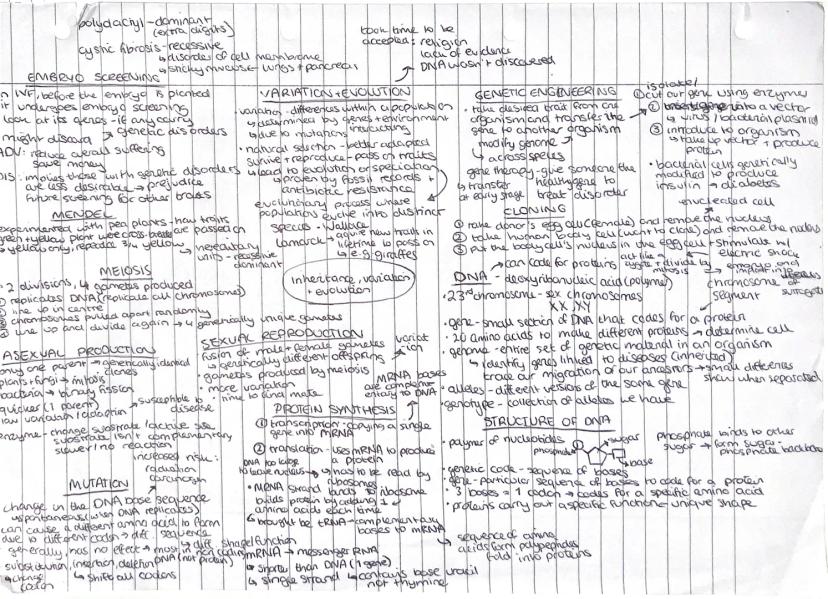 polydactyl - dominant
(extra digits)
cystic fibrosis - recessive
↳ disorder of cell membrane
↳ sticky mucose - lungs + pancreas
took time to be
accepted: religion
lack of evidence
DNA wasn't discovered
EMBRYO SCREENING
in IVF, before the embryo is planted
it undergoes embryo screening
look at its genes - if any carry
genetic disorders
might discard
ADV: reduce overall suffering
save money
DIS: implies those with genetic disorders
are less desirable → prejudice
future screening for other traits
MENDEL
experimented with pea plants - how traits
are passed on
green + yellow plant were cross
yellow only, repeated 3/4 yellow → hereditary
units - recessive
dominant
MEIOSIS
• 2 divisions, 4 gametes produced
① replicates DNA (replicate all chromosomes)
② line up in centre
③ chromosomes pulled apart randomly
④ line up and divide again → 4 genetically unique gametes
ASEXUAL PRODUCTION
only one parent → genetically identical
clones
plants + fungi → mitosis
bacteria → binary fission
quicker (1 parent)
low variation/adaption → susceptible to
disease
enzyme - change substrate/active site
substrate isn't complementary
slower/no reaction
increased risk:
radiation
carcinogen
MUTATION
change in the DNA base sequence
↳ spontaneous (when DNA replicates)
can cause a different amino acid to form
due to different codon → diff. sequence
↳ diff. shape/function
generally, has no effect → most in non coding
DNA (not protein)
substitution, insertion, deletion
↳ change
codon
↳ shifts all codons
VARIATION + EVOLUTION
• variation - differences within a population
↳ determined by genes + environment
↳ due to mutations interacting
• natural selection - better adapted
survive + reproduce - pass on traits
↳ lead to evolution or speciation
↳ proven by fossil records +
antibiotic resistance
evolutionary process where
populations evolve into distinct
species - Wallace
Lamarck → acquire new traits in
lifetime to pass on
↳ e.g. giraffes
inheritance, variation
+ evolution
SEXUAL REPRODUCTION
fusion of male + female gametes
↳ genetically different offspring → variat
ion
• gametes produced by meiosis
• more variation
• time to find mate
MRNA bases
are complem-
entary to DNA
PROTEIN SYNTHESIS
① transcription - copying a single
gene into mRNA
② translation - uses mRNA to produce
a protein
DNA too large
to leave nucleus
↳ has to be read by
ribosomes
• MRNA strand binds to ribosome
builds protein by adding 1
amino acids each time
↳ brought be tRNA → complementary
bases to mRNA
mRNA → messenger RNA
↳ shorter than DNA (1 gene)
↳ single strand ↳ contains base uracil
not thymine
GENETIC ENGINEERING
• take desired trait from one
organism and transfer the
gene to another organism
modify genome
↳ across species
gene therapy - give someone the
healthy gene to
treat disorder
↳ transfer
at early stage
isolate/
① cut our gene using enzymes
② insert gene into a vector
↳ virus/bacterial plasmid
③ introduce to organism
↳ take up vector + produce
protein
• bacterial cells genetically
modified to produce
insulin → diabetes
enucleated cell
CLONING
① take donor's egg cell (female) and remove the nucleus
② take human body cell (want to clone) and remove the nucleus
③ put the body cell's nucleus in the egg cell + stimulate w/
electric shock
act like a
zygote + divide by
mitosis
embryo and
implant in
surrogate
DNA → can code for proteins
- deoxyribonucleic acid (polymer)
• 23rd chromosome - sex chromosomes
XX, XY
chromosome
segment
• gene - small section of DNA that codes for a protein
• 20 amino acids to make different proteins → determine cell
• genome - entire set of genetic material in an organism
↳ identify genes linked to diseases (inherited)
trace our migration of our ancestors → small differences
show when separated
• alleles - different versions of the same gene
• genotype - collection of alleles we have
STRUCTURE OF DNA
• polymer of nucleotides
phosphate
sugar
base
phosphate binds to other
sugar → form sugar-
phosphate backbone
• genetic code - sequence of bases
• gene - particular sequence of bases to code for a protein
• 3 bases = 1 codon → codes for a specific amino acid
• proteins carry out a specific function - unique shape
↳ sequence of amino
acids form polypeptides
fold into proteins